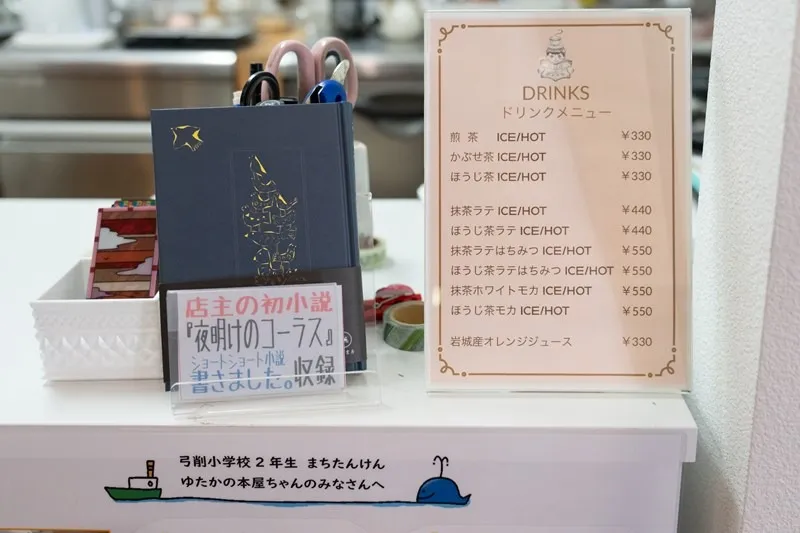 DRINKS
ドリンクメニュー
煎 茶 ICE/HOT ¥330
かぶせ茶 ICE/HOT ¥330
ほうじ茶 ICE/HOT ¥330
抹茶ラテ ICE/HOT ¥440
ほうじ茶ラテ ICE/HOT ¥440
抹茶ラテはちみつ ICE/HOT ¥550
ほうじ茶ラテはちみつ ICE/HOT ¥550
抹茶ホワイトモカ ICE/HOT ¥550
ほうじ茶モカ ICE/HOT ¥550
岩城産オレンジジュース ¥330
店主の初小説
『夜明けのコーラス』
ショートショート小説
書きました。収録
弓削小学校2年生 まちたんけん
ゆたかの本屋ちゃんのみなさんへ